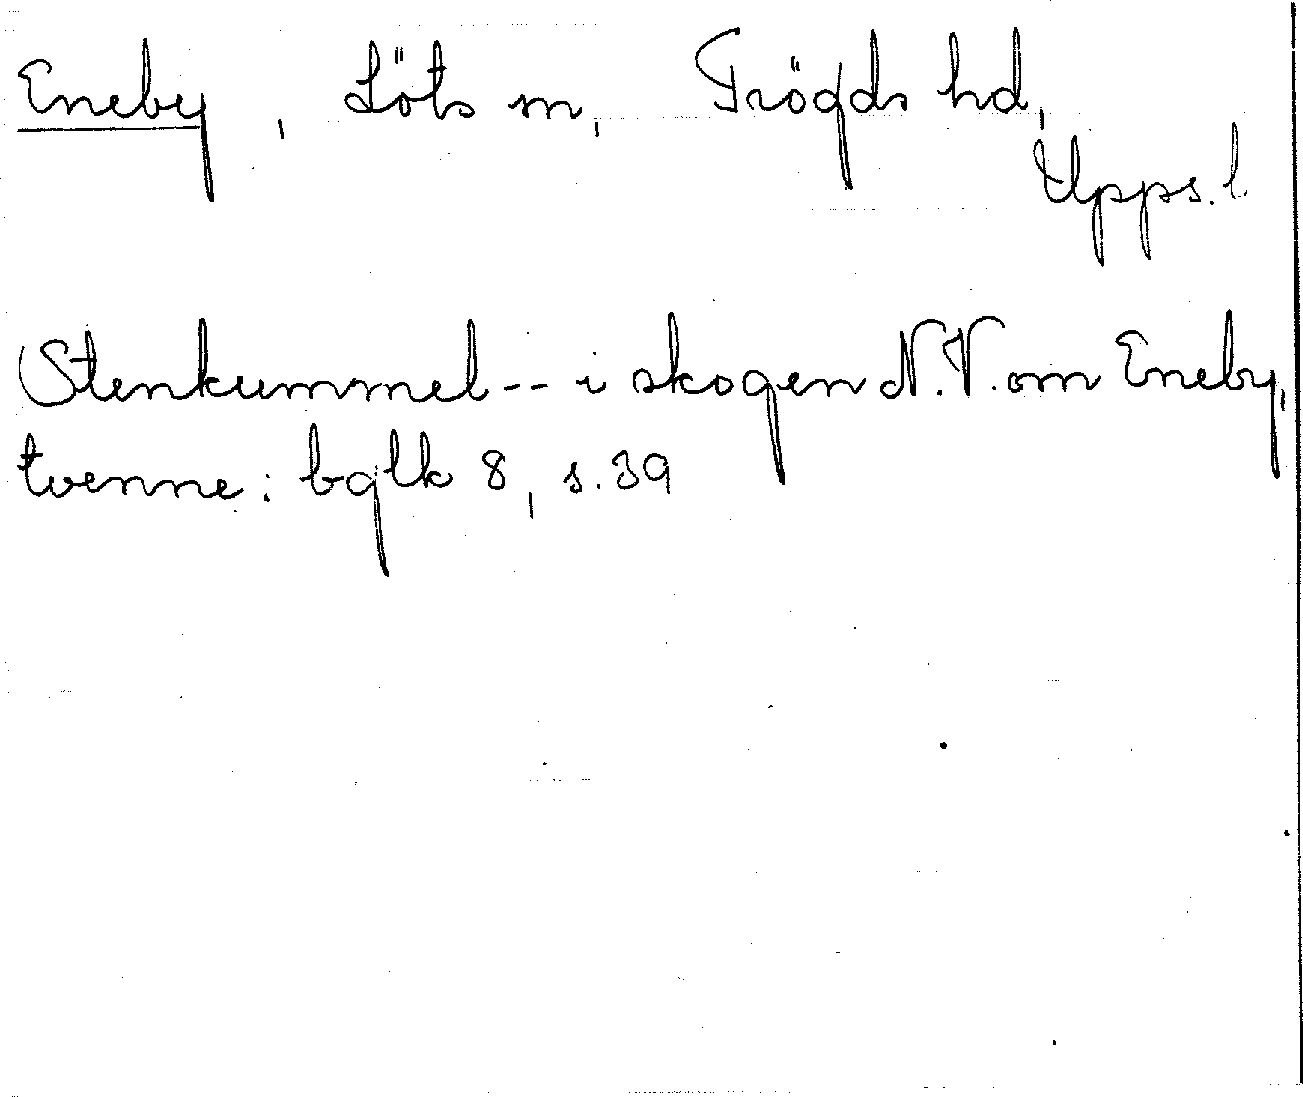 Eneby, Löts sn, Trögds hd,
Upps. l.
Stenkummel -- i skogen N.V. om Eneby,
tvenne: bglk 8, s. 39